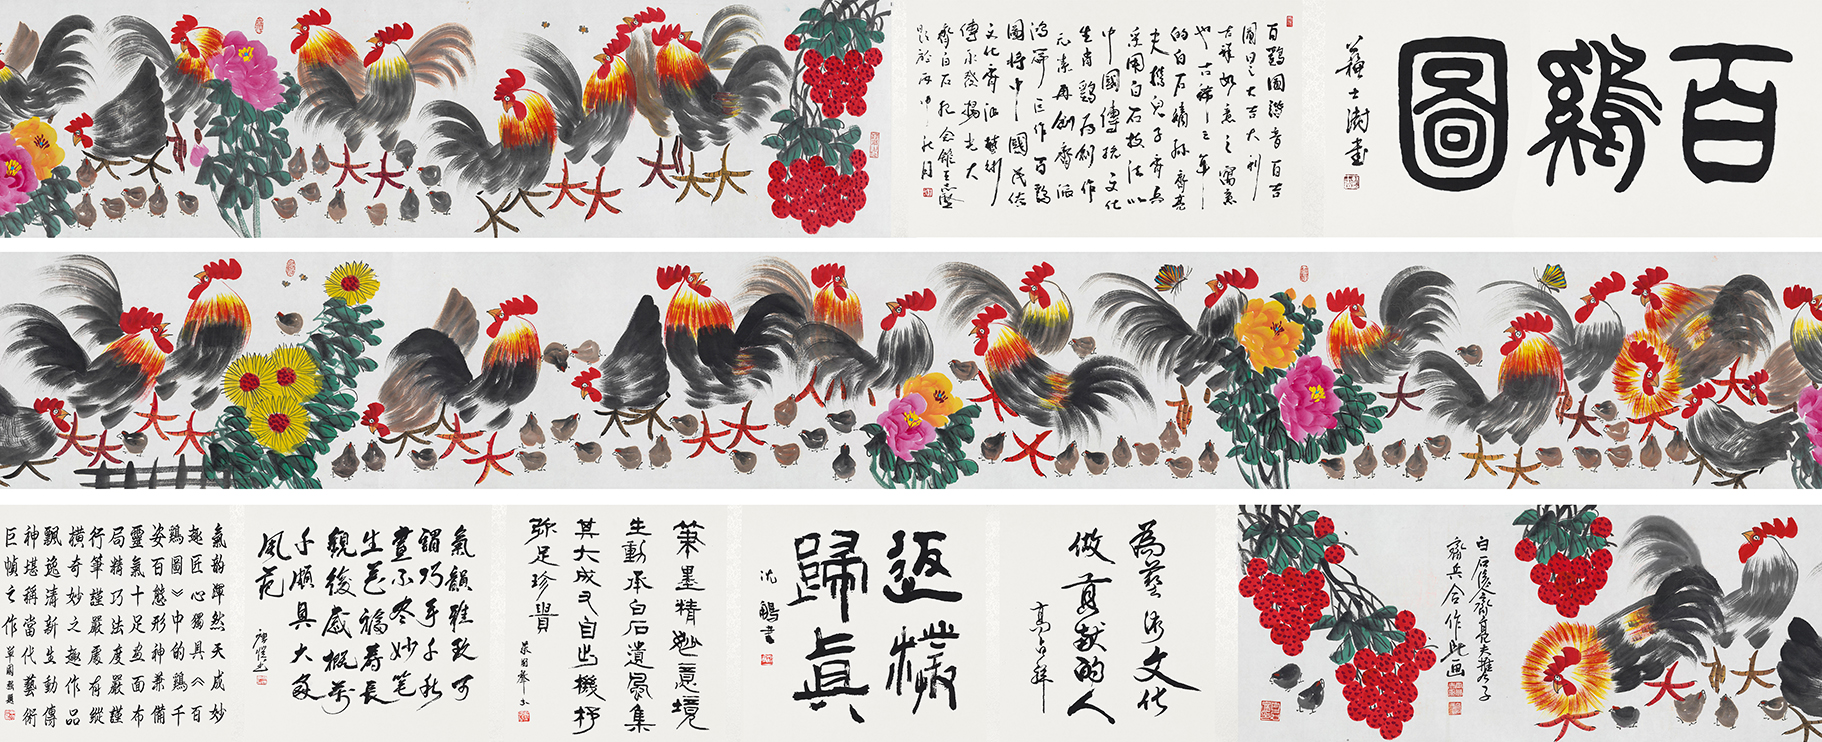 百鷄圖
蘇士澍書
百鷄圖諧音百吉
圖曰之大吉大利
吉祥如意之寓意
也古稀之年
的白石嫡孫齊亮
夫携兒子齊兵
采用白石技法以
中國傳統文化
生肖鷄為創作
元素再創齊派
鴻篇巨作百鷄
圖將中國民俗
文化齊派藝術
傳承發揚光大
齊白石紀念館王志
題於丙申秋月
白石後裔齊亮夫携子
齊兵合作此画
為藝術文化
做貢獻的人
高占祥
返樸
歸真
沈鵬書
筆墨精妙意境
生動承白石遺風集
其大成又自出機杼
弥足珍貴
氣韻雅致可
謂巧手千秋
畫不尽妙笔
生花福壽長
觀後感概万
千頗具大家
風范
氣韵渾然天成妙
趣匠心獨具《百
鷄圖》中的鷄千
姿百態形神兼備
靈氣十足畫面布
局精巧法度嚴謹
行筆謹嚴處有縱
横奇妙之趣作品
飄逸清新生動傳
神堪稱當代藝術
巨幀之作 單國强題